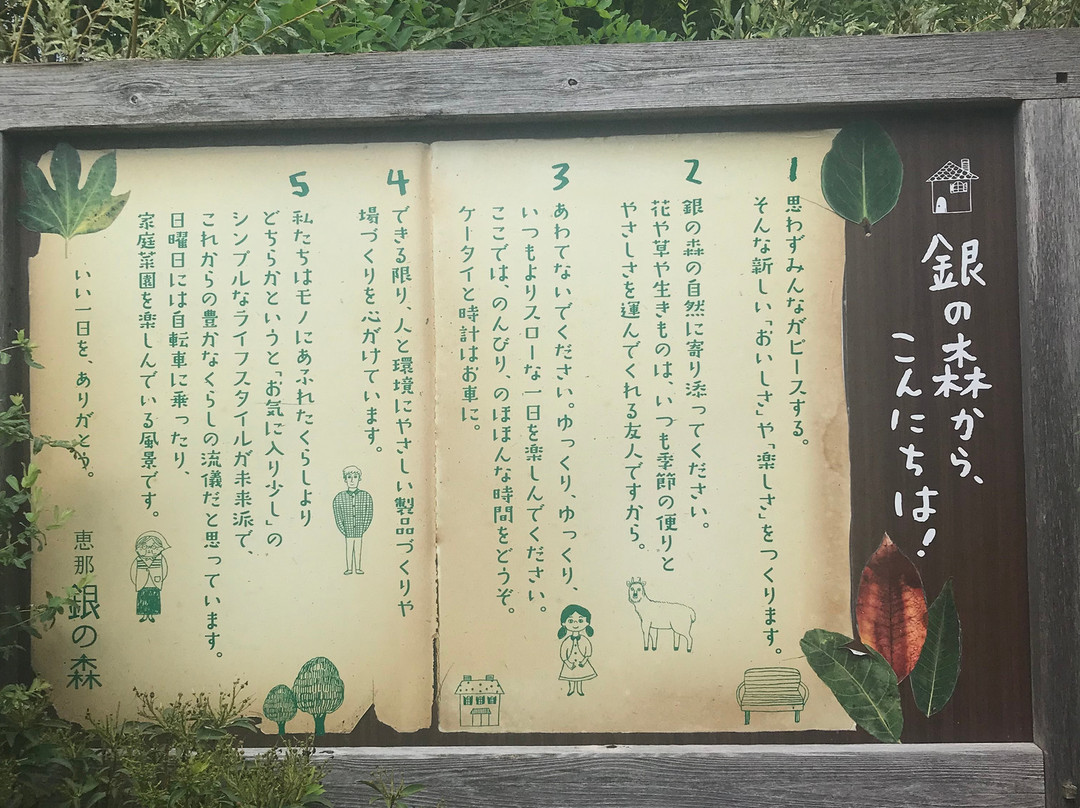 銀の森から、
こんにちは!
1
思わずみんながピースする。
そんな新しい「おいしさ」や「楽しさ」をつくります。
2
銀の森の自然に寄り添ってください。
花や草や生きものは、いつも季節の便りと
やさしさを運んでくれる友人ですから。
3
あわてないでください。ゆっくり、ゆっくり、
いつもよりスローな一日を楽しんでください。
ここでは、のんびり、のほほんな時間をどうぞ。
ケータイと時計はお車に。
4
できる限り、人と環境にやさしい製品づくりや
場づくりを心がけています。
5
私たちはモノにあふれたくらしより
どちらかというと「お気に入り少し」の
シンプルなライフスタイルが未来派で、
これからの豊かなくらしの流儀だと思っています。
日曜日には自転車に乗ったり、
家庭菜園を楽しんでいる風景です。
いい一日を、ありがとう。
恵那 銀の森